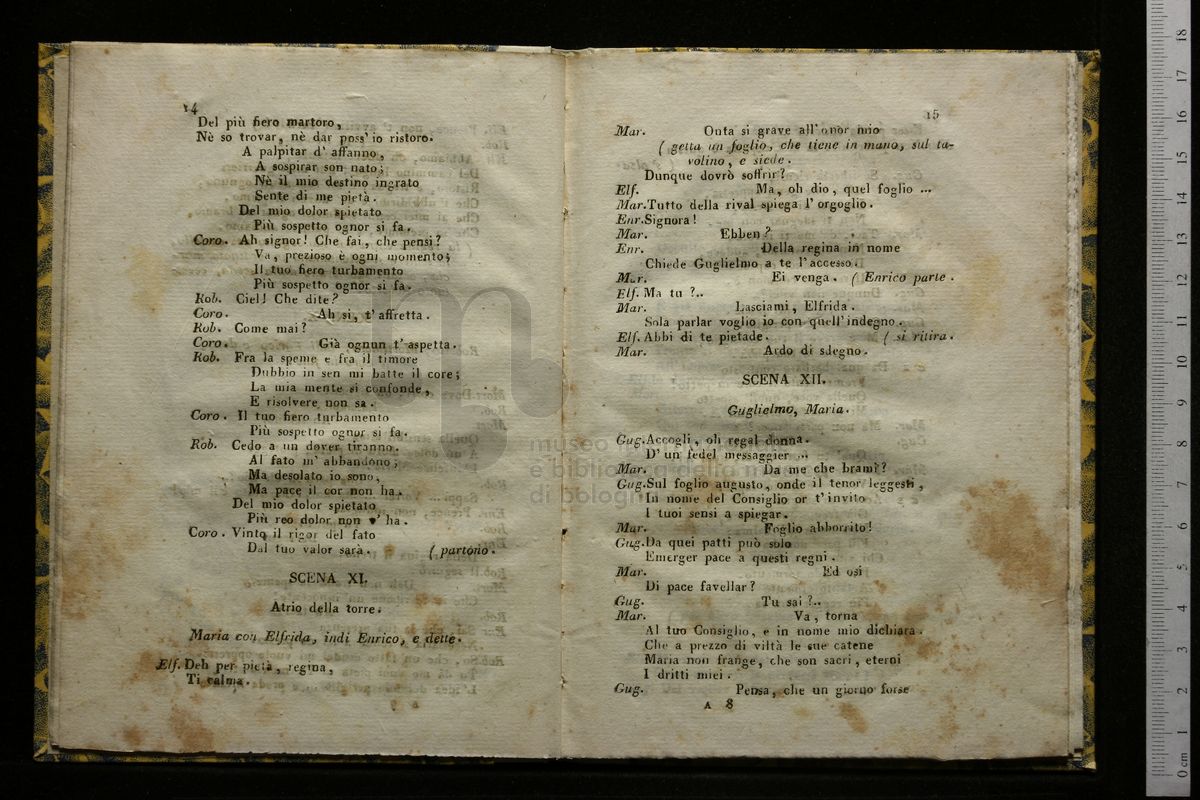 14
Del più fiero martoro,
Nè so trovar, nè dar poss' io ristoro.
A palpitar d' affanno,
A sospirar son nato;
Nè il mio destino ingrato
Sente di me pietà.
Del mio dolor spietato
Più sospetto ognor si fa.
Coro. Ah signor! Che fai, che pensi?
Va, prezioso è ogni momento;
Il tuo fiero turbamento
Più sospetto ognor si fa.
Rob. Ciel! Che dite?
Coro. Ah si, t' affretta.
Rob. Come mai?
Coro. Già ognun t' aspetta.
Rob. Fra la speme e fra il timore
Dubbio in sen mi batte il core;
La mia mente si confonde,
E risolvere non sa.
Coro. Il tuo fiero turbamento
Più sospetto ognor si fa.
Rob. Cedo a un dover tiranno.
Al fato m' abbandono;
Ma desolato io sono,
Ma pace il cor non ha.
Del mio dolor spietato
Più reo dolor non v' ha.
Coro. Vinto il rigor del fato
Dal tuo valor sarà. ( partono.
SCENA XI.
Atrio della torre.
Maria con Elfrida, indi Enrico, e dette.
Elf. Deh per pietà, regina,
Ti calma.
15
Mar. Onta si grave all' onor mio
( getta un foglio, che tiene in mano, sul ta-
volino, e siede.
Dunque dovrò soffrir?
Elf. Ma, oh dio, quel foglio ...
Mar. Tutto della rival spiega l' orgoglio.
Enr. Signora!
Mar. Ebben?
Enr. Della regina in nome
Chiede Guglielmo a te l' accesso.
Mar. Ei venga. ( Enrico parte.
Elf. Ma tu?..
Mar. Lasciami, Elfrida.
Sola parlar voglio io con quell' indegno.
Elf. Abbi di te pietade. ( si ritira.
Mar. Ardo di sdegno.
SCENA XII.
Guglielmo, Maria.
Gug. Accogli, oh regal donna.
D' un fedel messaggier ...
Mar. Da me che brami?
Gug. Sul foglio augusto, onde il tenor leggesti,
In nome del Consiglio or t' invito
I tuoi sensi a spiegar.
Mar. Foglio abborrito!
Gug. Da quei patti può solo
Emerger pace a questi regni.
Mar. Ed osi
Di pace favellar?
Gug. Tu sai?..
Mar. Va, torna
Al tuo Consiglio, e in nome mio dichiara.
Che a prezzo di viltà le sue catene
Maria non frange, che son sacri, eterni
I dritti miei.
Gug. Pensa, che un giorno forse
A 8
museo
e biblioteca della
di bologna